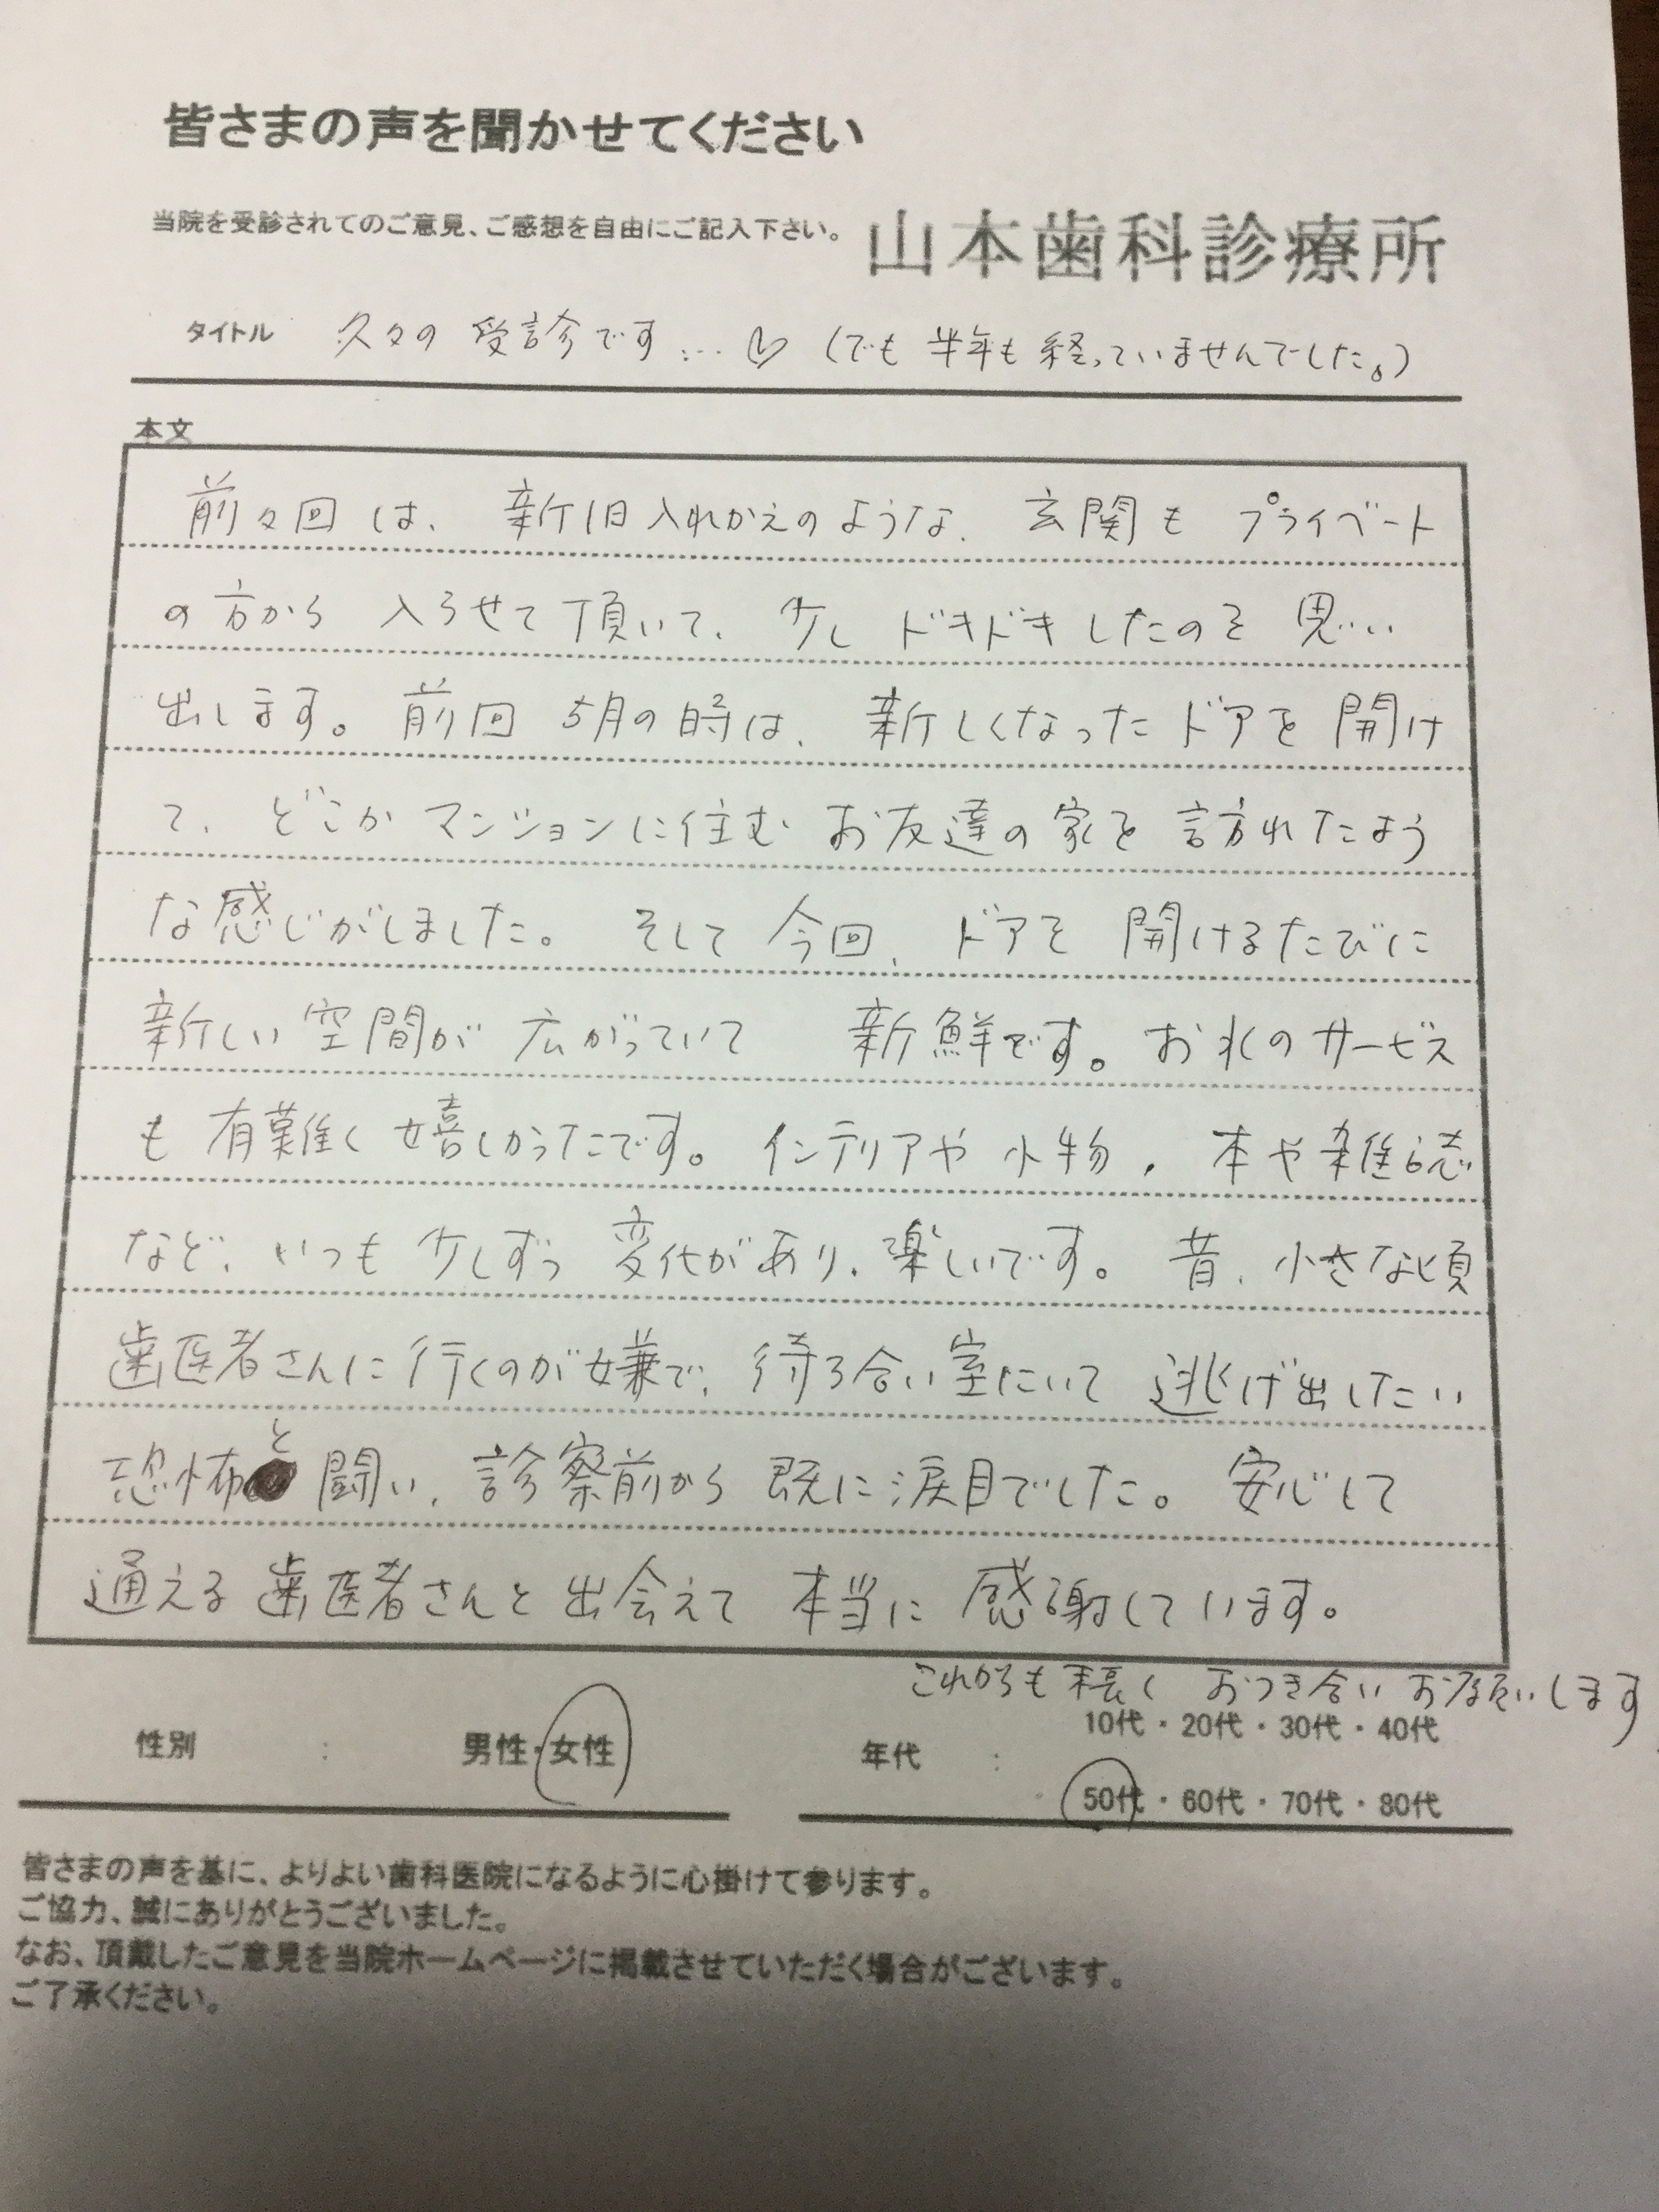 皆さまの声を聞かせてください
当院を受診されてのご意見、ご感想を自由にご記入下さい。 山本歯科診療所
タイトル 久々の受診です…♡(でも半年も経っていませんでした。)
本文
前々回は、新旧入れかえのような、玄関もプライベート
の方から入らせて頂いて、少しドキドキしたのを思い
出します。前回5月の時は、新しくなったドアを開け
て、どこかマンションに住むお友達の家を訪れたよう
な感じがしました。そして今回、ドアを開けるたびに
新しい空間が広がっていて 新鮮です。お水のサービス
も有難く嬉しかったです。インテリアや小物、本や雑誌
など、いつも少しずつ変化があり、楽しいです。昔、小さな頃
歯医者さんに行くのが嫌で、待ち合い室にいて逃げ出したい
恐怖と闘い、診察前から既に涙目でした。安心して
通える歯医者さんと出会えて本当に感謝しています。
これからも末長くおつき合いお願いします
性別 : 男性・女性 年代 : 10代・20代・30代・40代
50代・60代・70代・80代
皆さまの声を基に、よりよい歯科医院になるように心掛けて参ります。
ご協力、誠にありがとうございました。
なお、頂戴したご意見を当院ホームページに掲載させていただく場合がございます。
ご了承ください。